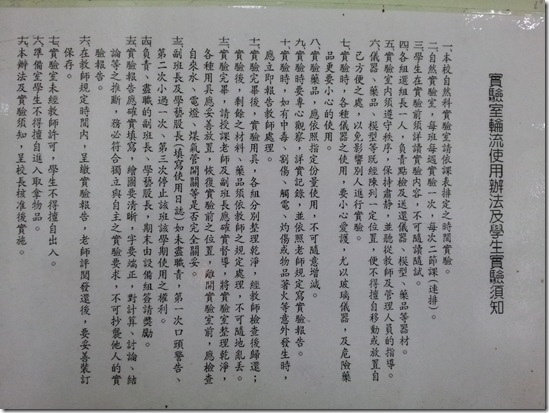 實驗室輪流使用辦法及學生實驗須知
一、本校自然科實驗室請依課表排定之時間實驗。
二、自然實驗室，每班每週實驗一次，每次二節課(連排)。
三、學生在實驗前須詳讀實驗內容，不可隨讀隨試。
四、各組選組長一人，負責點檢及送還儀器、模型、藥品等器材。
五、實驗室內須遵守秩序，保持肅靜，並聽從教師及管理人員的指導。
六、儀器、藥品、模型等既經陳列一定位置，便不得擅自移動或放置自
己方便之處，以免影響別人進行實驗。
七、實驗時，各種儀器之使用，要小心愛護，尤以玻璃儀器，及危險藥
品更是要小心的使用。
八、實驗藥品，應依照指定份量使用，不可隨意增減。
九、實驗時要專心觀察，詳實記錄，並依照老師規定寫實驗報告。
十、實驗時，如有中毒、割傷、觸電、灼傷或物品著火等意外發生時，
應立即報告教師處理。
十一、實驗完畢後，實驗用具，各組分別整理乾淨，經教師檢查後歸還；
實驗後，剩餘之材料、藥品須依教師之規定處理，不可隨地亂丟。
十二、實驗完畢，請授課老師及副班長應確實督導，將實驗室整理乾淨，
各種用具應妥善放置，恢復實驗前之位置，離開實驗室前，應檢查
自來水、電燈、煤氣管開關等是否完全關妥。
十三、副班長及學藝股長(填寫使用日誌)如未盡職責，第一次口頭警告、
第二次小過一次、第三次停止該班該學期使用之權利。
十四、負責、盡職的副班長、學藝股長，期末由設備組簽請獎勵。
十五、實驗報告應確實填寫，繪圖要清晰，字要端正，對計算、討論、結
論等之推斷，務必符合獨立與自主之實驗要求，不可抄襲他人的實
驗報告。
十六、在教師規定時間內，呈繳實驗報告，老師評閱發還後，要妥善裝訂
保存。
十七、實驗室未經教師許可，學生不得擅自出入。
十八、準備室學生不得擅自進入取拿物品。
十九、本辦法及實驗須知，呈校長核准後實施。